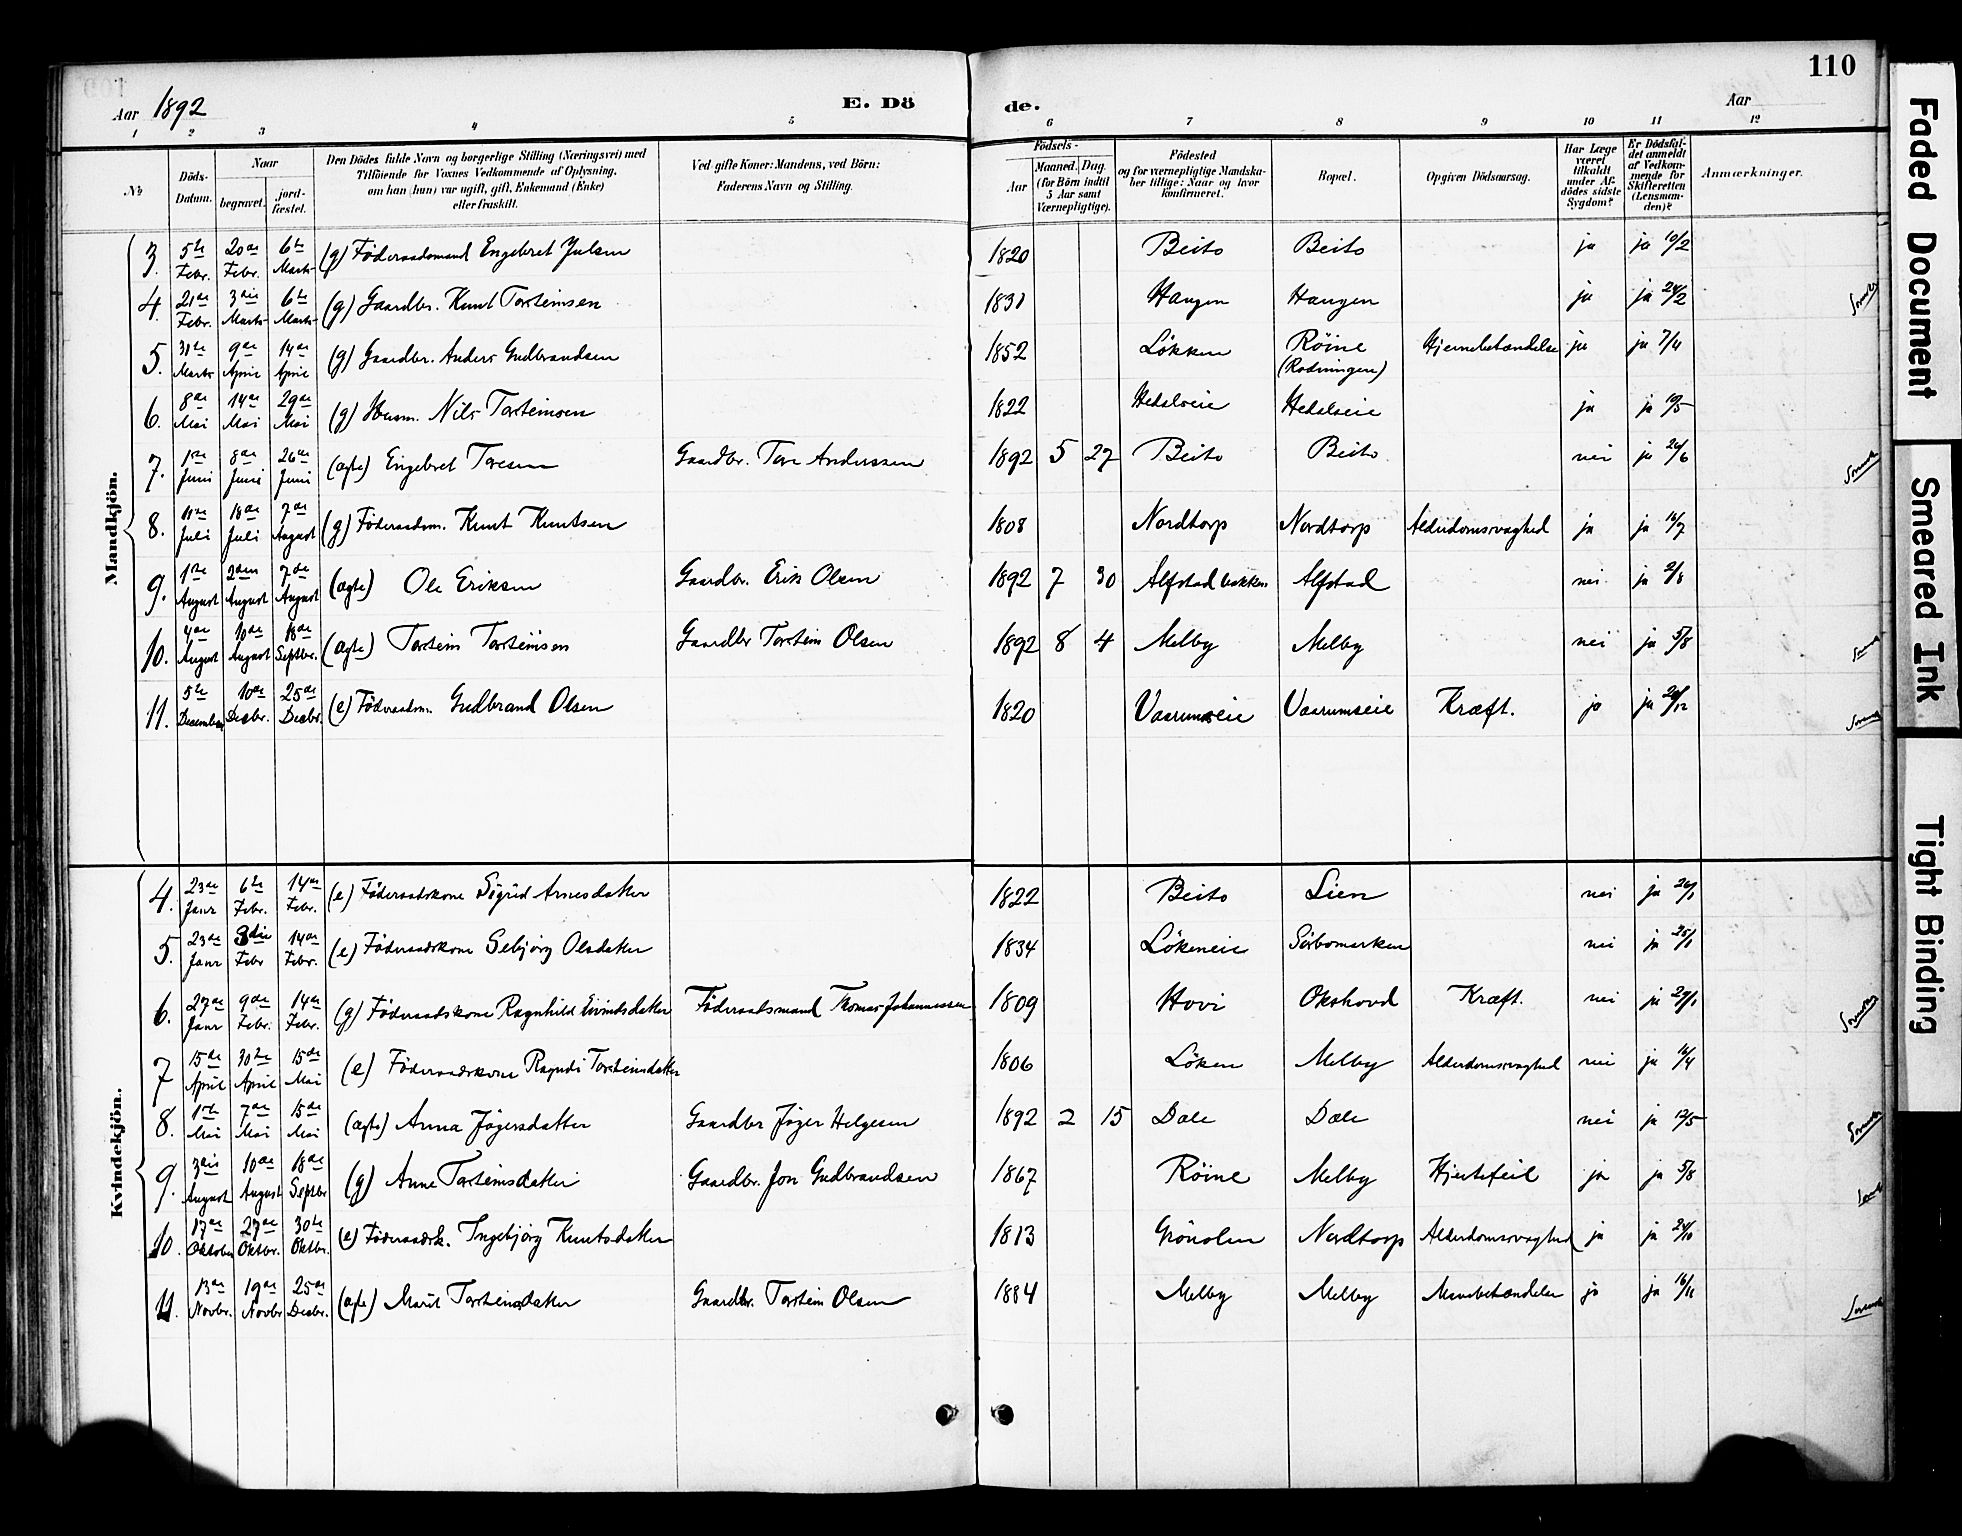 110
Aar 1892 E. Dö de. Aar
1 2 3 4 5 6 7 8 9 10 11 12
No
Döds-Datum.
Naar
begravet.
jord-fæstet.
Den Dödes fulde Navn og borgerlige Stilling (Næringsvei) med
Tilföiende for Voxnes Vedkommende af Oplysning,
om han (hun) var ugift, gift, Enkemand (Enke)
eller fraskilt.
Ved gifte Koner: Mandens, ved Börn:
Faderens Navn og Stilling.
Födsels-
Aar
Maaned. Dag.
(for Börn indtil
5 Aar samt
Værnepligtige).
Födested
og for værnepligtige Mandska-
ber tillige: Naar og hvor
konfirmeret.
Bopæl.
Opgiven Dödsaarsag.
Har Læge
været
tilkaldt
under Af-
dödes sidste
Sygdom?
Er Dödsfal-
det anmeldt
af Vedkom-
mende for
Skifteretten
(Lensman-
den)?
Anmærkninger.
Mandkjön.
3. 5te Febr. 20de Febr. 6te Marts (g) Föderaadsmand Engebret Julsen 1820 Beito Beito ja ja 10/2
4. 21de Febr. 3die Marts 6te Marts (g) Gaardbr. Knut Torsteinsen 1831 Haugen Haugen ja ja 24/2
5. 31te Marts 9de April 14de April (g) Gaardbr. Anders Gudbrandsen 1852 Lökken Röine (Rodningen) Hjernebetændelse ja ja 7/4
6. 8de Mai 14de Mai 29de Mai (g) Husm. Nils Torsteinsen 1822 Hedalseie Hedalseie ja ja 10/5
7. 1ste Juni 8de Juni 26de Juni (ægte) Engebret Toresen Gaardbr. Tore Anderssen 1892 5 27 Beito Beito nei ja 26/6
8. 11te Juli 18de Juli 7de August (g) Föderaadsm. Knut Knutsen 1808 Nordtorp Nordtorp Alderdomssvaghed ja ja 16/7
9. 1ste August 2den August 7de August (ægte) Ole Eriksen Gaardbr. Erik Olsen 1892 7 30 Alfstad bakken Alfstad nei ja 2/8
10. 4de August 10de August 18de Septbr. (ægte) Torstein Torsteinsen Gaardbr Torstein Olsen 1892 8 4 Melby Melby nei ja 5/8
11. 5te December 10de Decbr. 25de Decbr (e) Föderaadsm. Gudbrand Olsen 1820 Vaarumseie Vaarumseie Kræft. ja ja 20/12
Kvindekjön.
4. 23de Janr 6te Febr. 14de Febr. (e) Föderaadskone Sigrid Arnesdatter 1822 Beito Lien nei ja 26/1
5. 23de Janr 3die Febr 14de Febr. (e) Föderaadskone Sebjörg Olsdatter 1834 Lökeneie Sörbomarken nei ja 25/1
6. 27de Janr 9de Febr. 14de Febr. (g) Föderaadskone Ragnhild Eivindsdatter Föderaadsmand Thomas Johannessen 1809 Hovi Okshovd Kræft. nei ja 29/1
7 15de April 30te April 15de Mai (e) Föderaadskone Ragndi Torsteinsdatter 1806 Löken Melby Alderdomssvaghed nei ja 16/4
8. 1ste Mai 7de Mai 15de Mai (ægte) Anna Jögersdatter Gaardbr Jöger Helgesen 1892 2 15 Dale Dale nei ja 12/5
9. 3die August 10de August 18de Septbr (g) Anne Torsteinsdatter Gaardbr. Jon Gudbrandsen 1867 Röine Melby Hjertefeil ja ja 5/8
10. 17de Oktober 27de Oktbr. 30te Oktbr. (e) Föderaadsk. Ingebjörg Knutsdatter 1813 Grönolen Nordtorp Alderdomssvaghed ja ja 24/10
11. 13de Novbr. 19de Novbr 25de Decbr. (ægte) Marit Torsteinsdatter Gaardbr. Torstein Olsen 1884 Melby Melby ja ja 16/11
Faded Document
Smeared Ink
Tight Binding